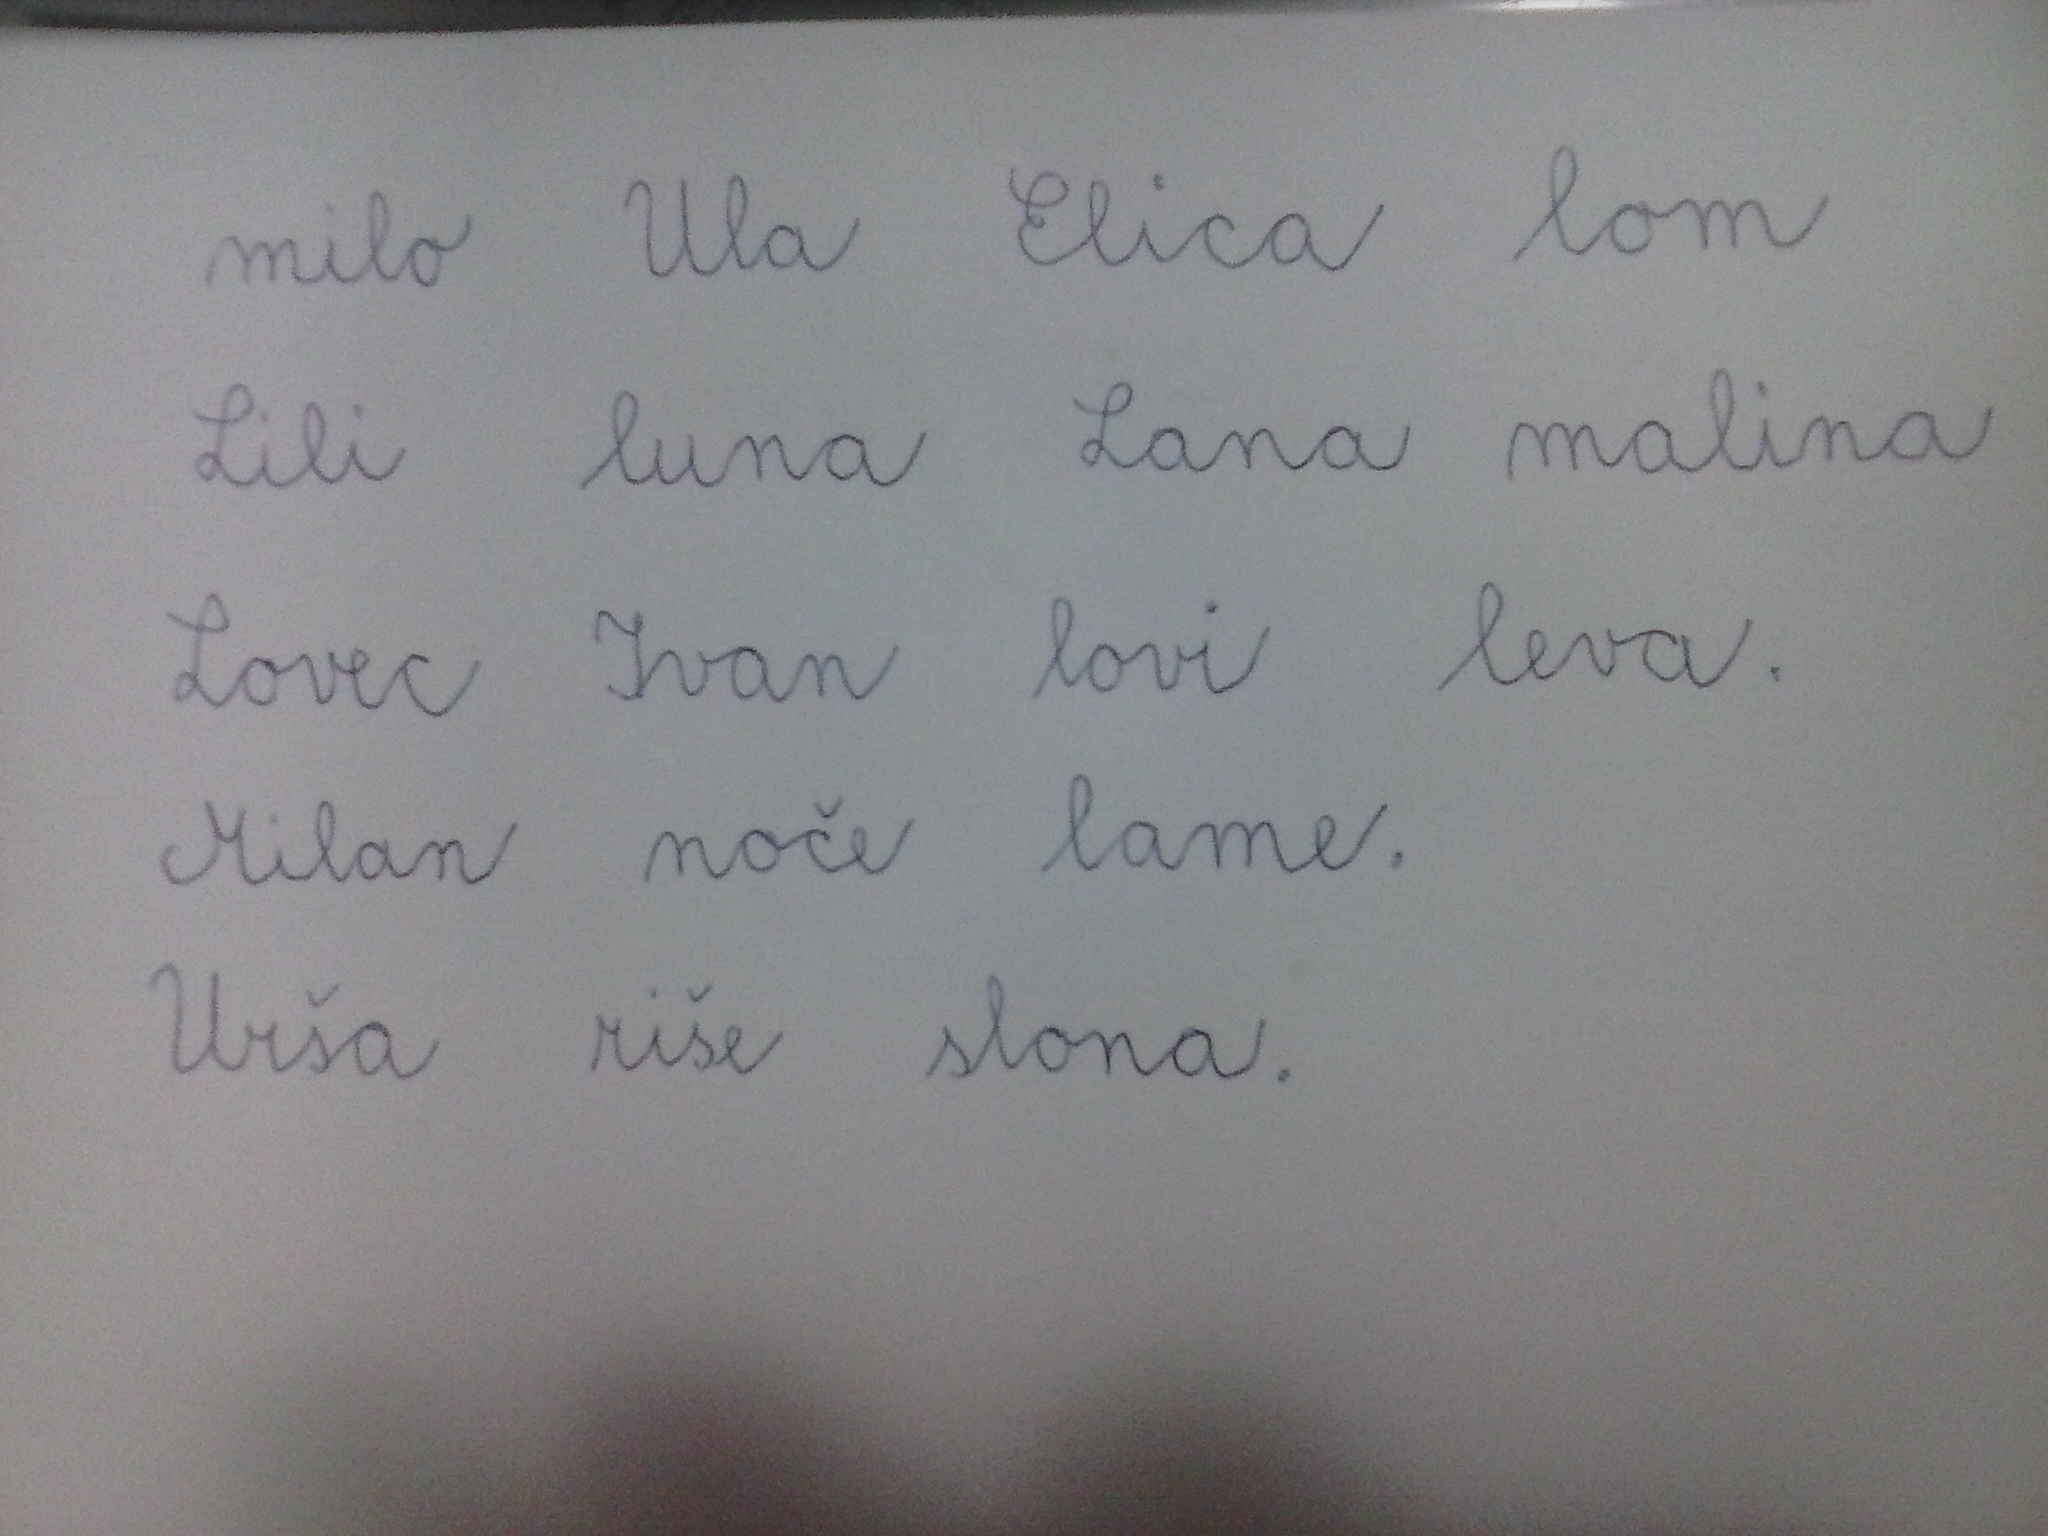 milo Ula Elica lom
Lili luna Lana malina
Lovec Ivan lovi leva.
Milan noče lame.
Urša riše slona.